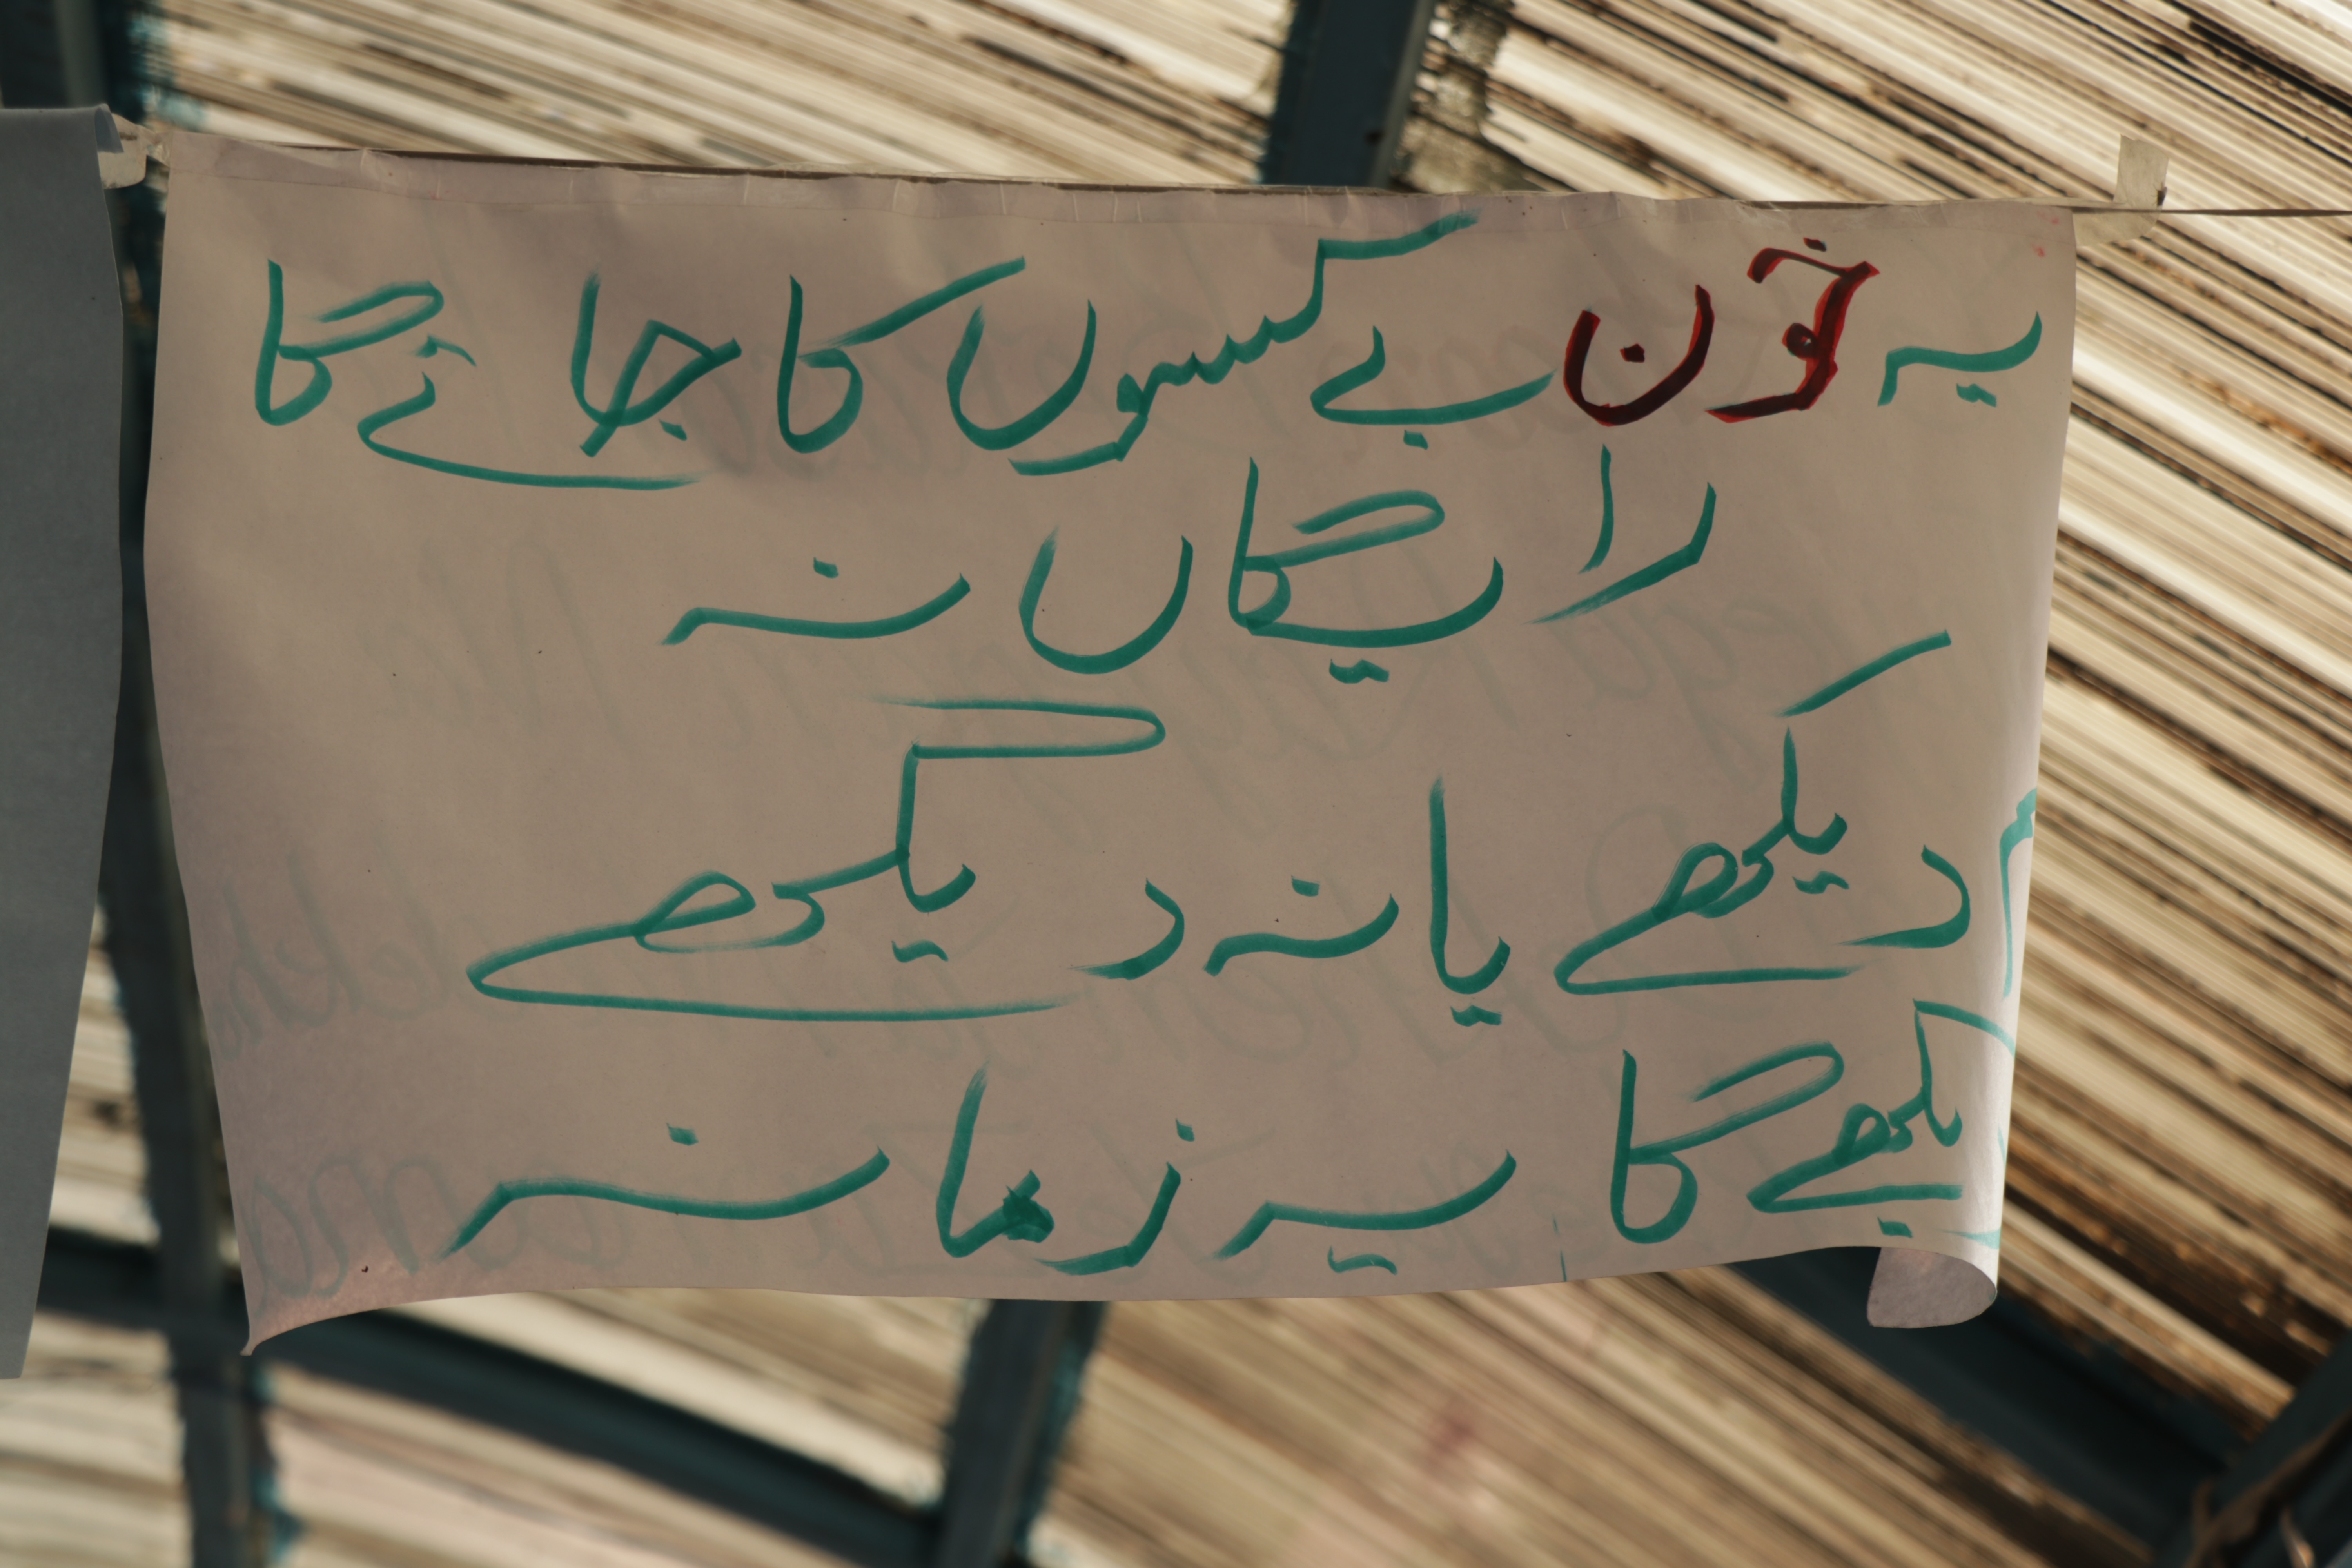 یہ خون بے کسوں کا جائے گا
رایگاں نہ
دیکھے یا نہ دیکھے
دیکھے گا یہ زمانہ